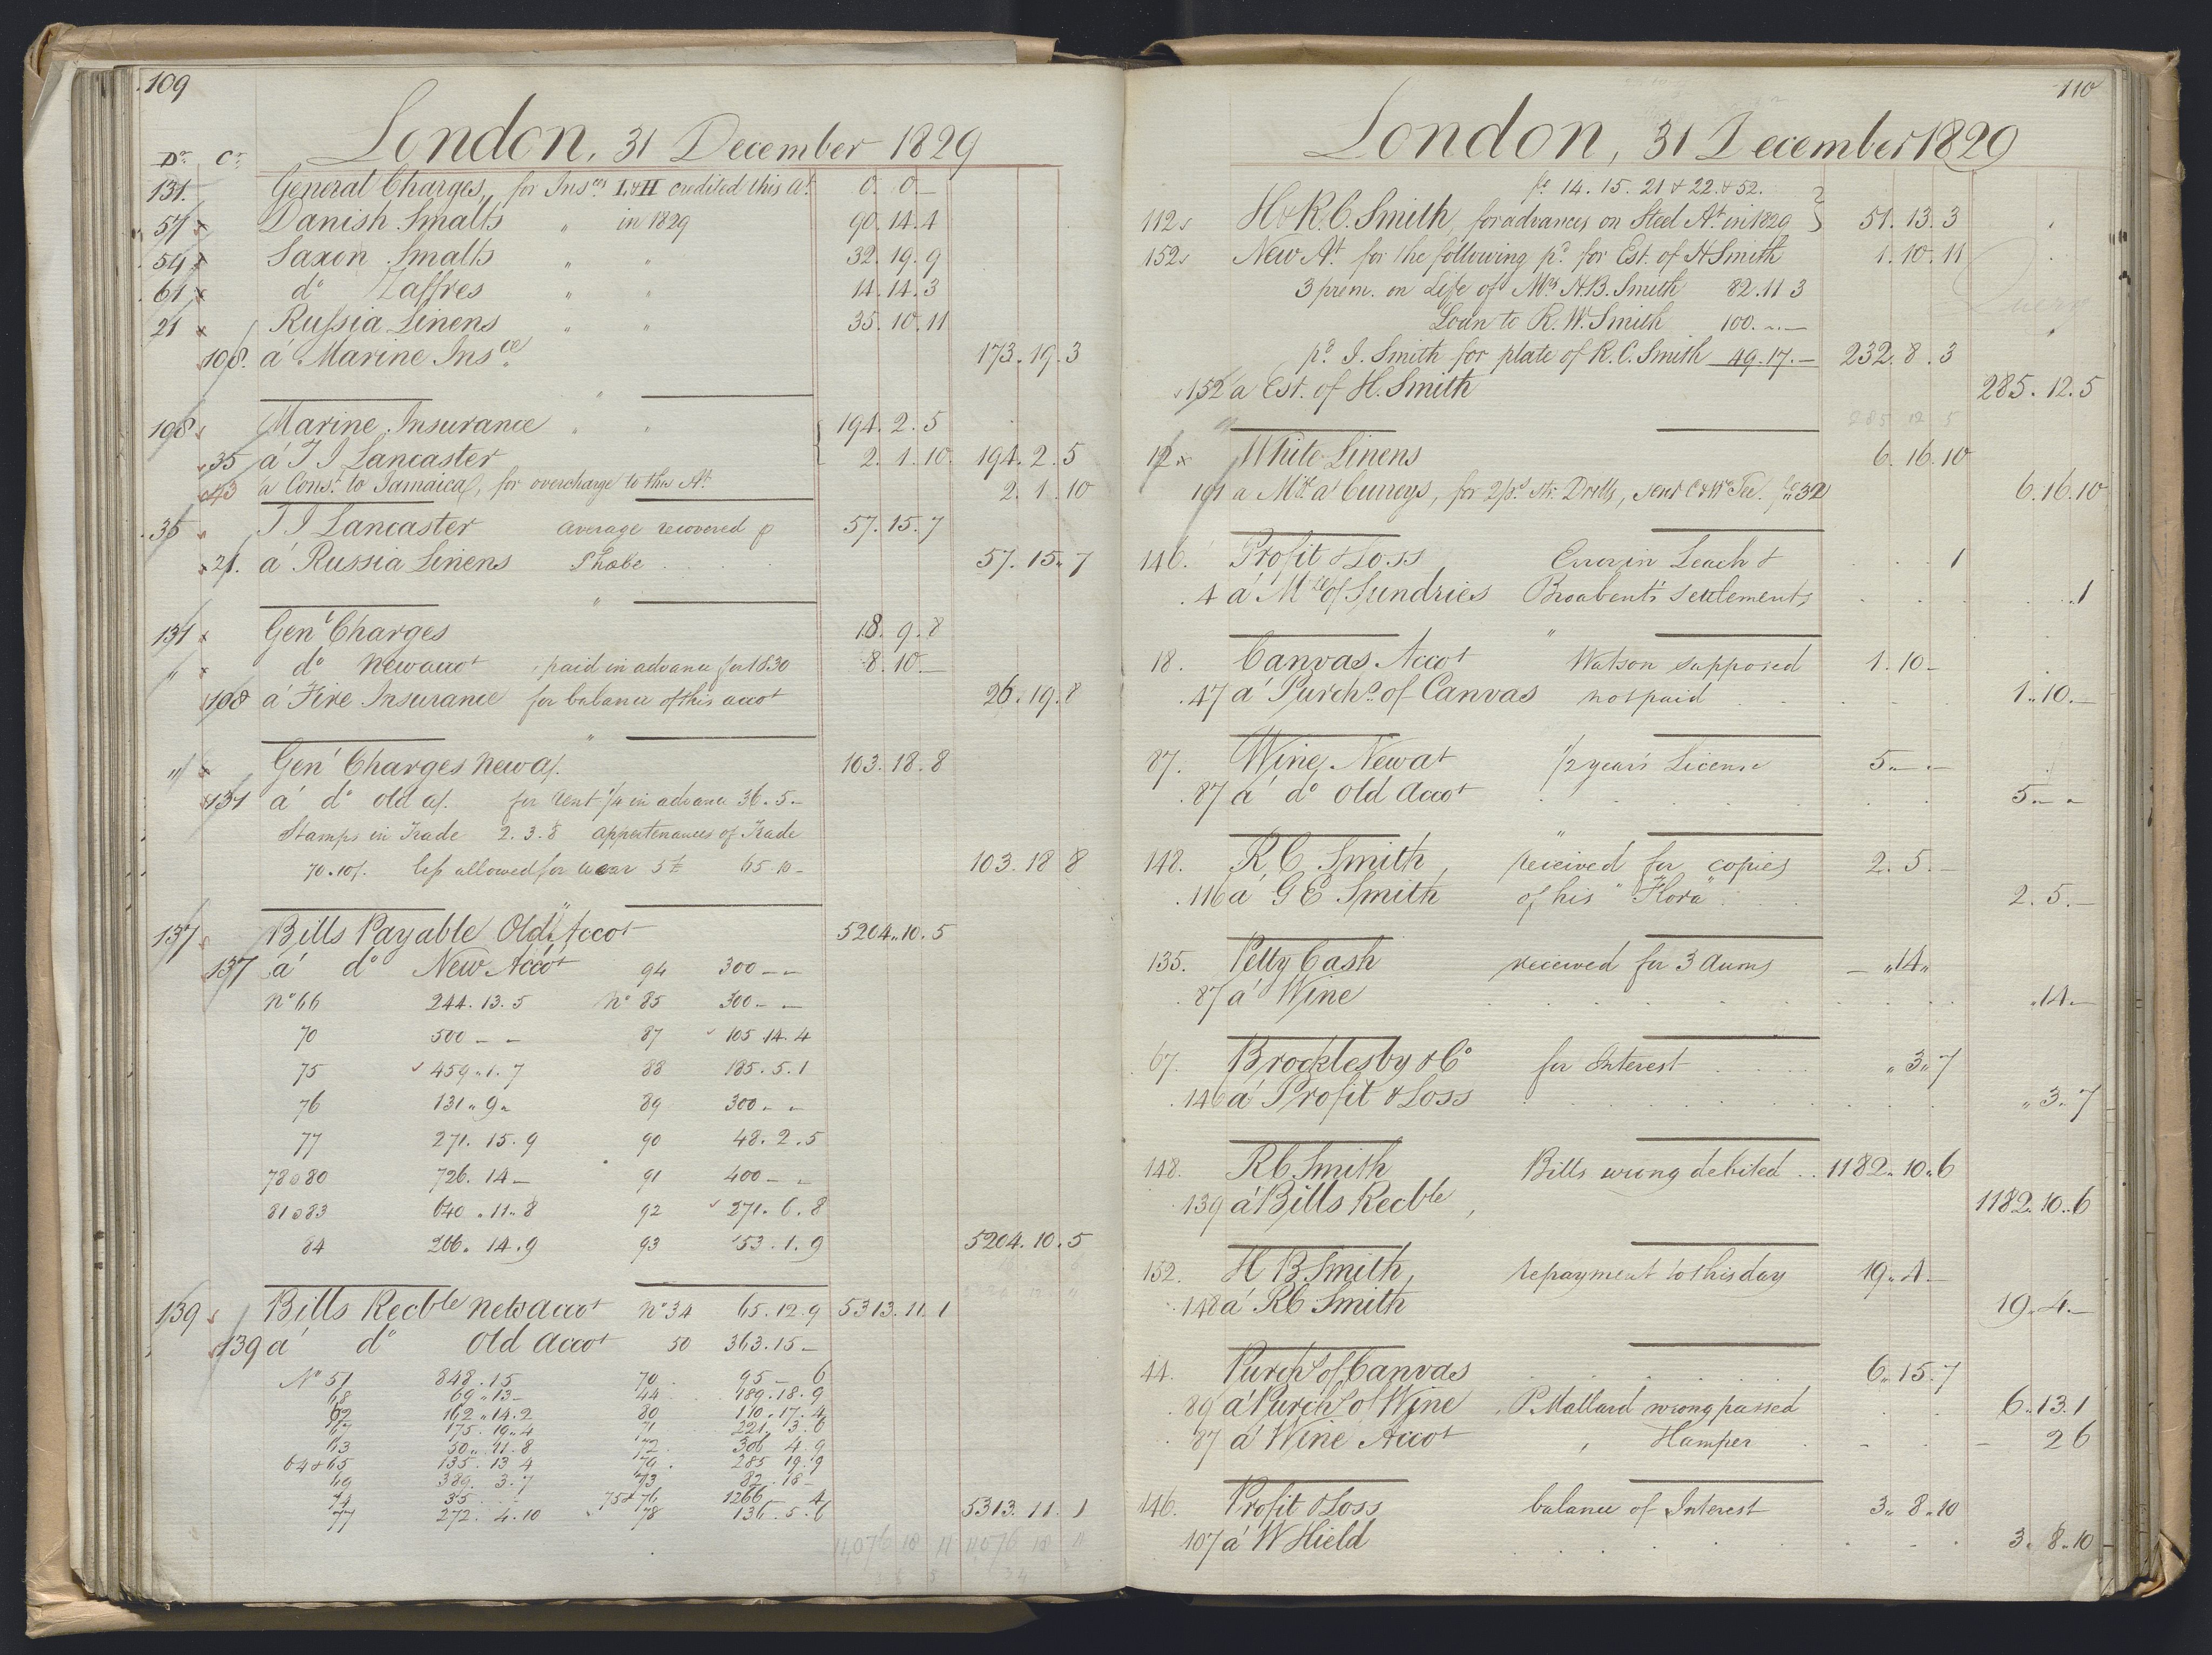 109
London, 31 December 1829
Dr. Cr.
131. General Charges, for Insces I & II credited this At. 0. 0. —
57 x Danish Smalts " in 1829 90. 14. 4
54 x Saxon Smalts " " 32. 19. 9
61 x do Zaffres " " 14. 14. 3
21 x Russia Linens " " 35. 10. 11
108. á Marine Insce. 173. 19. 3
108 Marine Insurance " " 194. 2. 5
35 á T J Lancaster 2. 1. 10. 194. 2. 5
43 a Const. to Jamaica, for overcharge to this At. 2. 1. 10
35 T J Lancaster average recovered p 57. 15. 7
21. á Russia Linens Phobe 57. 15. 7
131 x Genl Charges 18. 9. 8
" x do New accot paid in advance for 1830 8. 10. —
108 á Fire Insurance for balance of this accot 26. 19. 8
" x Genl Charges new a/. 103. 18. 8
131 á do old a/. for rent 1/4 in advance 36. 5. —
Stamps in Trade 2. 3. 8 appertenances of Trade
70. 10/. less allowed for wear 5 £ 65. 10 — 103. 18. 8
137 Bills Payable Old Accot 5204. 10. 5
137 á do New Accot 94 300 — —
No 66 244. 13. 5 No 85 300 — —
70 500 — — 87 105. 14. 4
75 459. 1. 7 88 185. 5. 1
76 131 " 9 " 89 300 — —
77 271. 15. 9 90 48. 2. 5
78 a 80 726. 14 — 91 400 — —
81 a 83 640. 11. 8 92 271. 6. 8
84 266. 14. 9 93 53. 1. 9 5204. 10. 5
139 Bills Recble new accot No 34 65. 12. 9 5313. 11. 1
139 á do Old Accot 50 363. 15 —
No 57 848. 15 70 95 — 6
68 69 " 13 — 44 189. 18. 9
62 162 " 14. 2 80 110. 17. 4
67 175. 19. 4 71 221. 3. 6
63 50. 11. 8 72 306 4. 9
64 & 65 135. 13 4 79 285 19. 9
69 389. 3. 7 73 82. 18 —
74 35 75 & 76 1266 — 4
77 272. 4. 10 78 136. 5. 6 5313. 11. 1
11,076 18 11 11,076 18 11
110
London, 31 December 1829
fo 14. 15. 21 & 22. & 52.
112 H & R. C. Smith, for advances on Steel At. in 1829 51. 13. 3
152 New At. for the following pd. for Est. of H Smith 1. 10. 11
3 prem. on Life of Mrs H. B. Smith 82. 11 3
Loan to R. W. Smith 100. — —
pd. J. Smith for plate of R. C. Smith 49. 17. — 232. 8. 3
152 a Est. of H. Smith 285. 12. 5
285 12 5
12 x White Linens 6. 16. 10
101 a Mdze a' Curreys, for 2 ps. str. Drills, 6. 16. 10
146. Profit & Loss Error in Leach & 1
4 á Mdze of Sundries Broabent's settlements 1
18. Canvas Accot Watson supposed 1. 10 —
47 á Purchs. of Canvas not paid 1. 10. —
87. Wine, New at 1/2 year's License 5 — —
87 á do Old Accot 5 — —
148. R. C. Smith, received for copies 2. 5. —
116 á G E Smith of his "Flora" 2. 5. —
135. Petty Cash received for 3 Aums — " 14 "
87 á Wine " 14. —
67. Brocklesby & Co for Interest " 3 " 7
146 á Profit & Loss " 3. 7
148. R C Smith Bills wrong debited 1182. 10. 6
139 á Bills Recble, 1182. 10. 6
152. H B Smith, repayment to this day 19. 4. —
148 á R C Smith 19. 4. —
44. Purchs of Canvas 6. 15. 7
89 á Purchs of Wine, P. Mallard wrong passed 6. 13. 1
87 á Wine Accot, Hamper 2 6
146. Profit & Loss balance of Interest 3. 8. 10
107 á W Hield 3. 8. 10